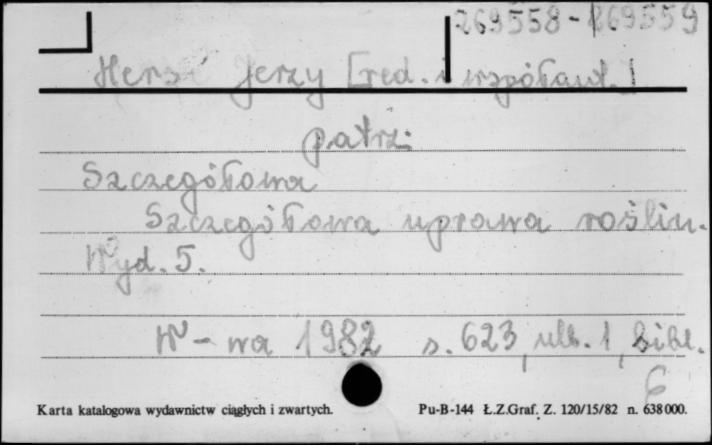 269558-269559
Herse Jerzy [red. i współaut.]
patrz:
Szczegółowa
Szczegółowa uprawa roślin.
Wyd. 5.
W-wa 1982 s. 623, ulb. 1, bibl.
6
Karta katalogowa wydawnictw ciągłych i zwartych. Pu-B-144 Ł.Z.Graf. Z. 120/15/82 n. 638000.